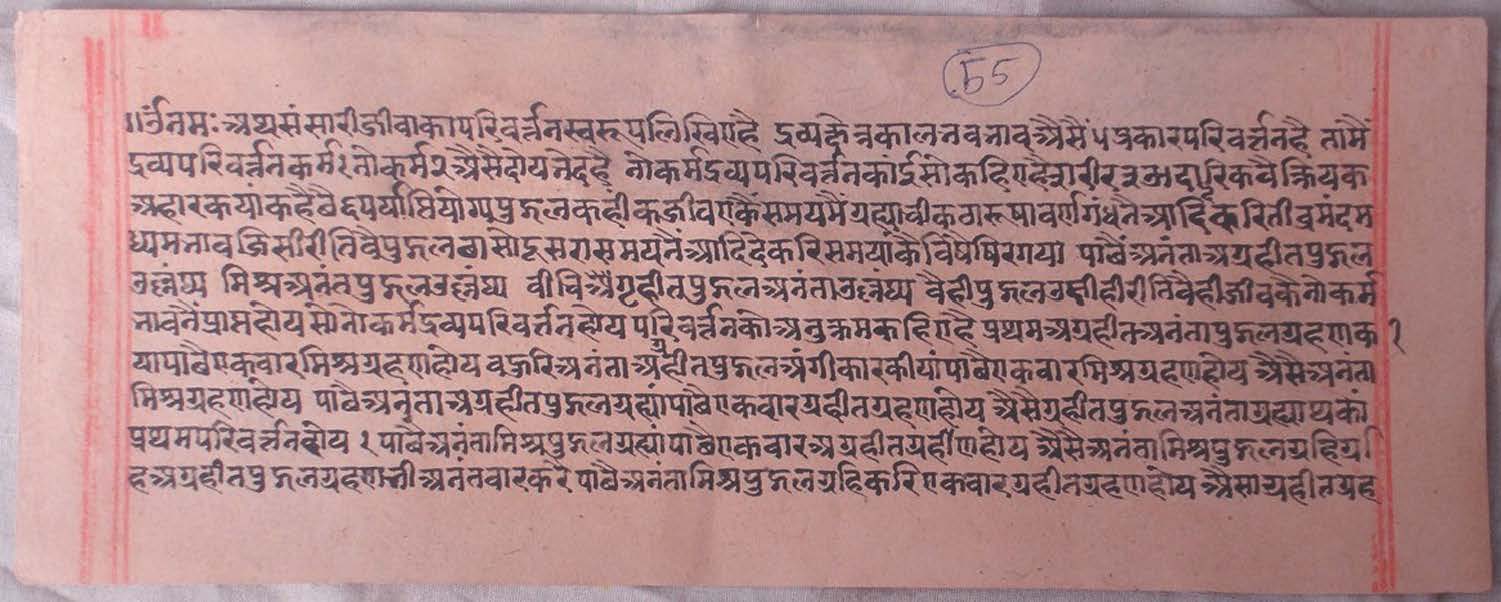 55
॥ॐनमः अथसंसारीजीवाकापरिवर्त्तनस्वरूपलिखिएहै द्रव्यक्षेत्रकालनवभाव अैसैं ५ प्रकारपरिवर्त्तनहै तामैं
द्रव्यपरिवर्त्तनकर्म १ नोकर्म २ अैसैदोयभेदहै नोकर्मद्रव्यपरिवर्त्तनकांईसोकहिएहै शरीर ३ अदारिकवैक्रियक
अहारकयांकहैवै ६ पर्याप्तियोग्यपुद्गलकहीकजीवएकैसमयमैंग्रह्याचीकणरूषावर्णगंधनैआदिकरितीव्रमंदम
ध्यमभावजिसीरीतिवैपुद्गलछासोदूसरासमयनैंआदिदेकरिसमयांकेविषैषिरगया पाछैंअनंताअग्रहीतपुद्गल
उल्लंघ्य मिश्रअनंतपुद्गलउल्लंघ्य वीचिअैगृहीतपुद्गलअनंताउल्लंघ्य वैहीपुद्गलउहीहीरीतिवैहीजीवकैनोकर्म
भावनैंप्राप्तहोयसोनोकर्मद्रव्यपरिवर्त्तनहोय परिवर्त्तनकोअनुक्रमकहिएहै प्रथमअग्रहीतअनंतापुद्गलग्रहणक १
यापाछैएकवारमिश्रग्रहणहोय वऊरिअनंताअग्रहीतपुद्गलअंगीकारकीयांपाछैएकवारमिश्रग्रहणहोय अैसैअनंता
मिश्रग्रहणहोय पाछैअनंताअग्रहीतपुद्गलग्रह्यांपाछैएकवारग्रहीतग्रहणहोय अैसैग्रहीतपुद्गलअनंताग्रह्याथकां
प्रथमपरिवर्त्तनहोय १ पाछैअनंतामिश्रपुद्गलग्रह्यांपाछैएकवारअग्रहीतग्रहणहोय अैसैअनंतामिश्रपुद्गलग्रहिग्र
हअग्रहीतपुद्गलग्रहणभीअनंतवारकरै पाछैअनंतामिश्रपुद्गलग्रहिकरिएकवारग्रहीतग्रहणहोय अैसाग्रहीतग्रह